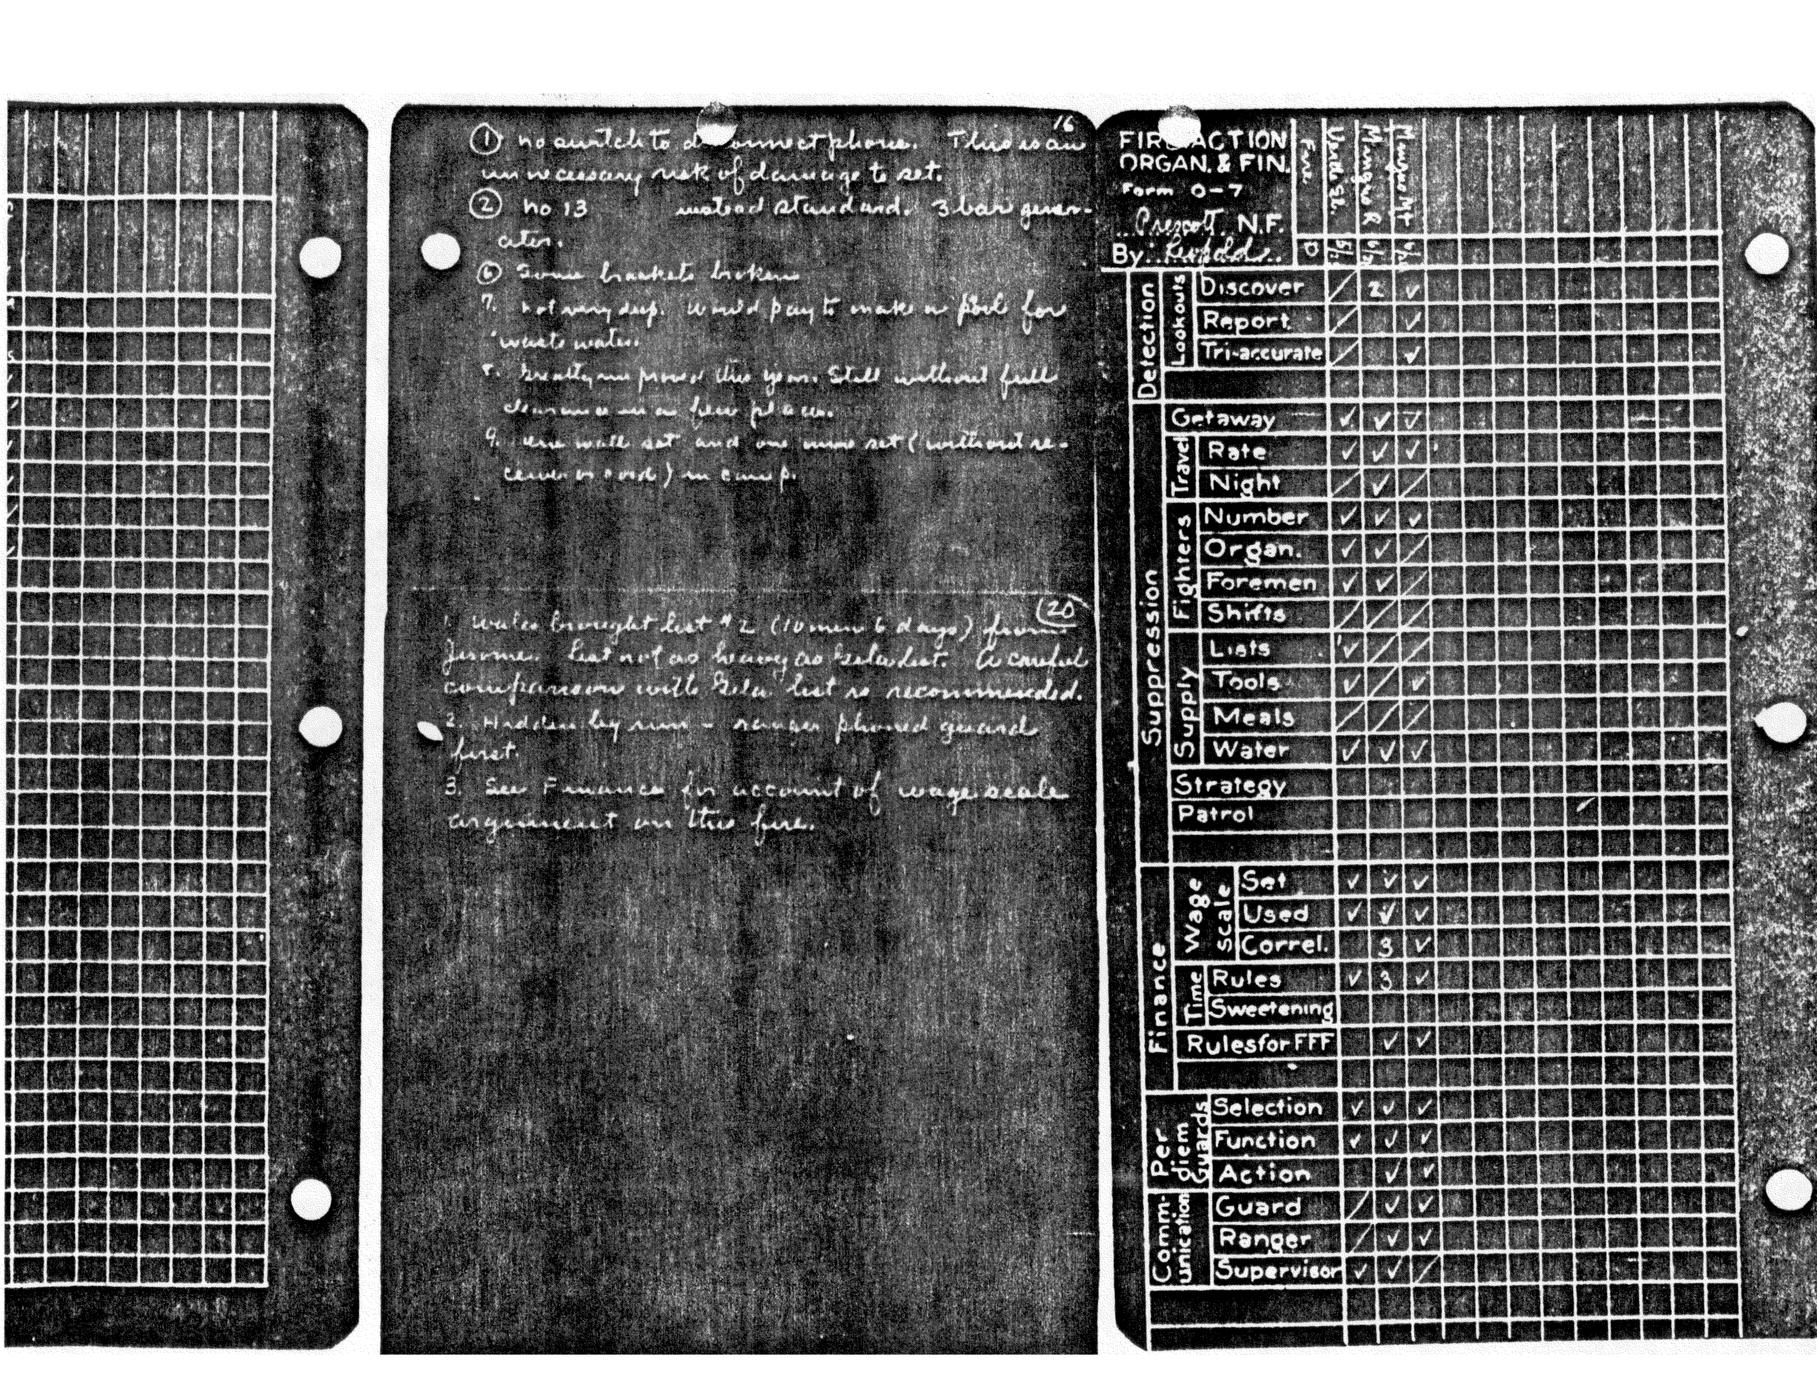 16
① no switch to disconnect phone. This is an
unnecessary risk of damage to set.
② no 13 instead standard. 3 bar gener-
ator.
⑥ Some brackets broken
7. not very deep. Would pay to make a pool for
waste water.
8. Greatly improved this year. Still without full
clearance in a few places.
9. One wall set and one set (without re-
ceiver or cord) in camp.
(20)
1. Wales brought list #2 (10 men 6 days) from
Jerome. List not as heavy as Gila list. A careful
comparison with Gila list is recommended.
2. Hidden by sun - ranger phoned guard
first.
3. See Finance for account of wage scale
argument on this fire.
FIRE ACTION
ORGAN. & FIN.
Form O-7
Prescott N.F.
By Leopold
Fire
D
Detection
Lookouts
Discover / 2 ✓
Report / ✓
Tri-accurate / ✓
Suppression
Getaway ✓ ✓ ✓
Travel
Rate ✓ ✓ ✓
Night / ✓ /
Fighters
Number ✓ ✓ ✓
Organ. ✓ ✓ /
Foremen ✓ ✓ /
Shifts / / /
Supply
Lists ✓ / /
Tools ✓ / ✓
Meals / / /
Water ✓ ✓ ✓
Strategy
Patrol
Finance
Wage scale
Set ✓ ✓ ✓
Used ✓ ✓ ✓
Correl. 3 ✓
Time
Rules ✓ 3 ✓
Sweetening
Rules for FFF ✓ ✓
Per diem Guards
Selection ✓ ✓ ✓
Function ✓ ✓ ✓
Action ✓ ✓
Comm-unication
Guard / ✓ ✓
Ranger / ✓ ✓
Supervisor ✓ ✓ /